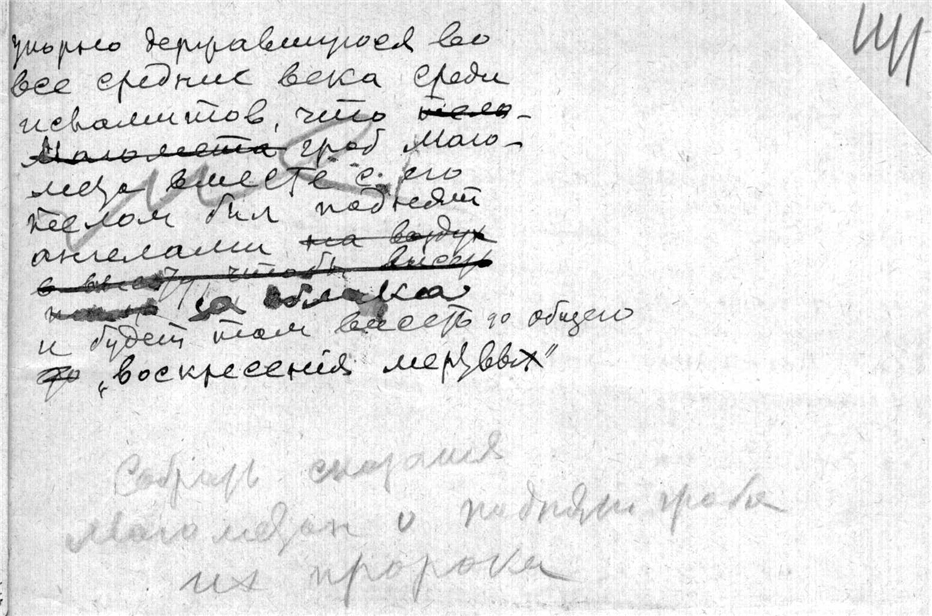 упорно державшуюся во
все средние века среди
исламитов, что тело
Магомета гроб Маго-
мета вместе с его
телом был поднят
ангелами на воздух
в высь, чтобы висеть
за облака
и будет там висеть до общего
до „воскресения мертвых"
Собрать сказания
Магометан о поднятии гроба
их пророка